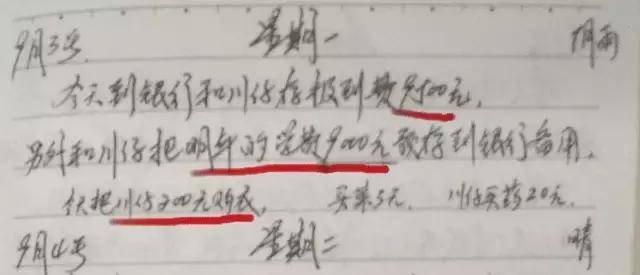 9月3号 星期一 阴雨
今天到银行和川仔存报到费9500元,
另外和川仔把明年的学费9000元预存到银行备用,
川仔200元 买菜5元, 川仔买药20元,
9月4号 星期二 晴